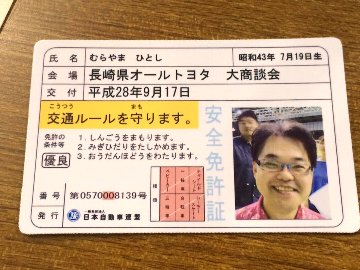 氏名 むらやま ひとし 昭和43年 7月19日生
会場 長崎県オールトヨタ 大商談会
交付 平成28年9月17日
こうつう まも
交通ルールを守ります。
免許の条件等
1. しんごうをまもります。
2. みぎひだりをたしかめます。
3. おうだんほどうをわたります。
優良
安全免許証
番号 第0570008139号
種類
発行 一般社団法人 日本自動車連盟